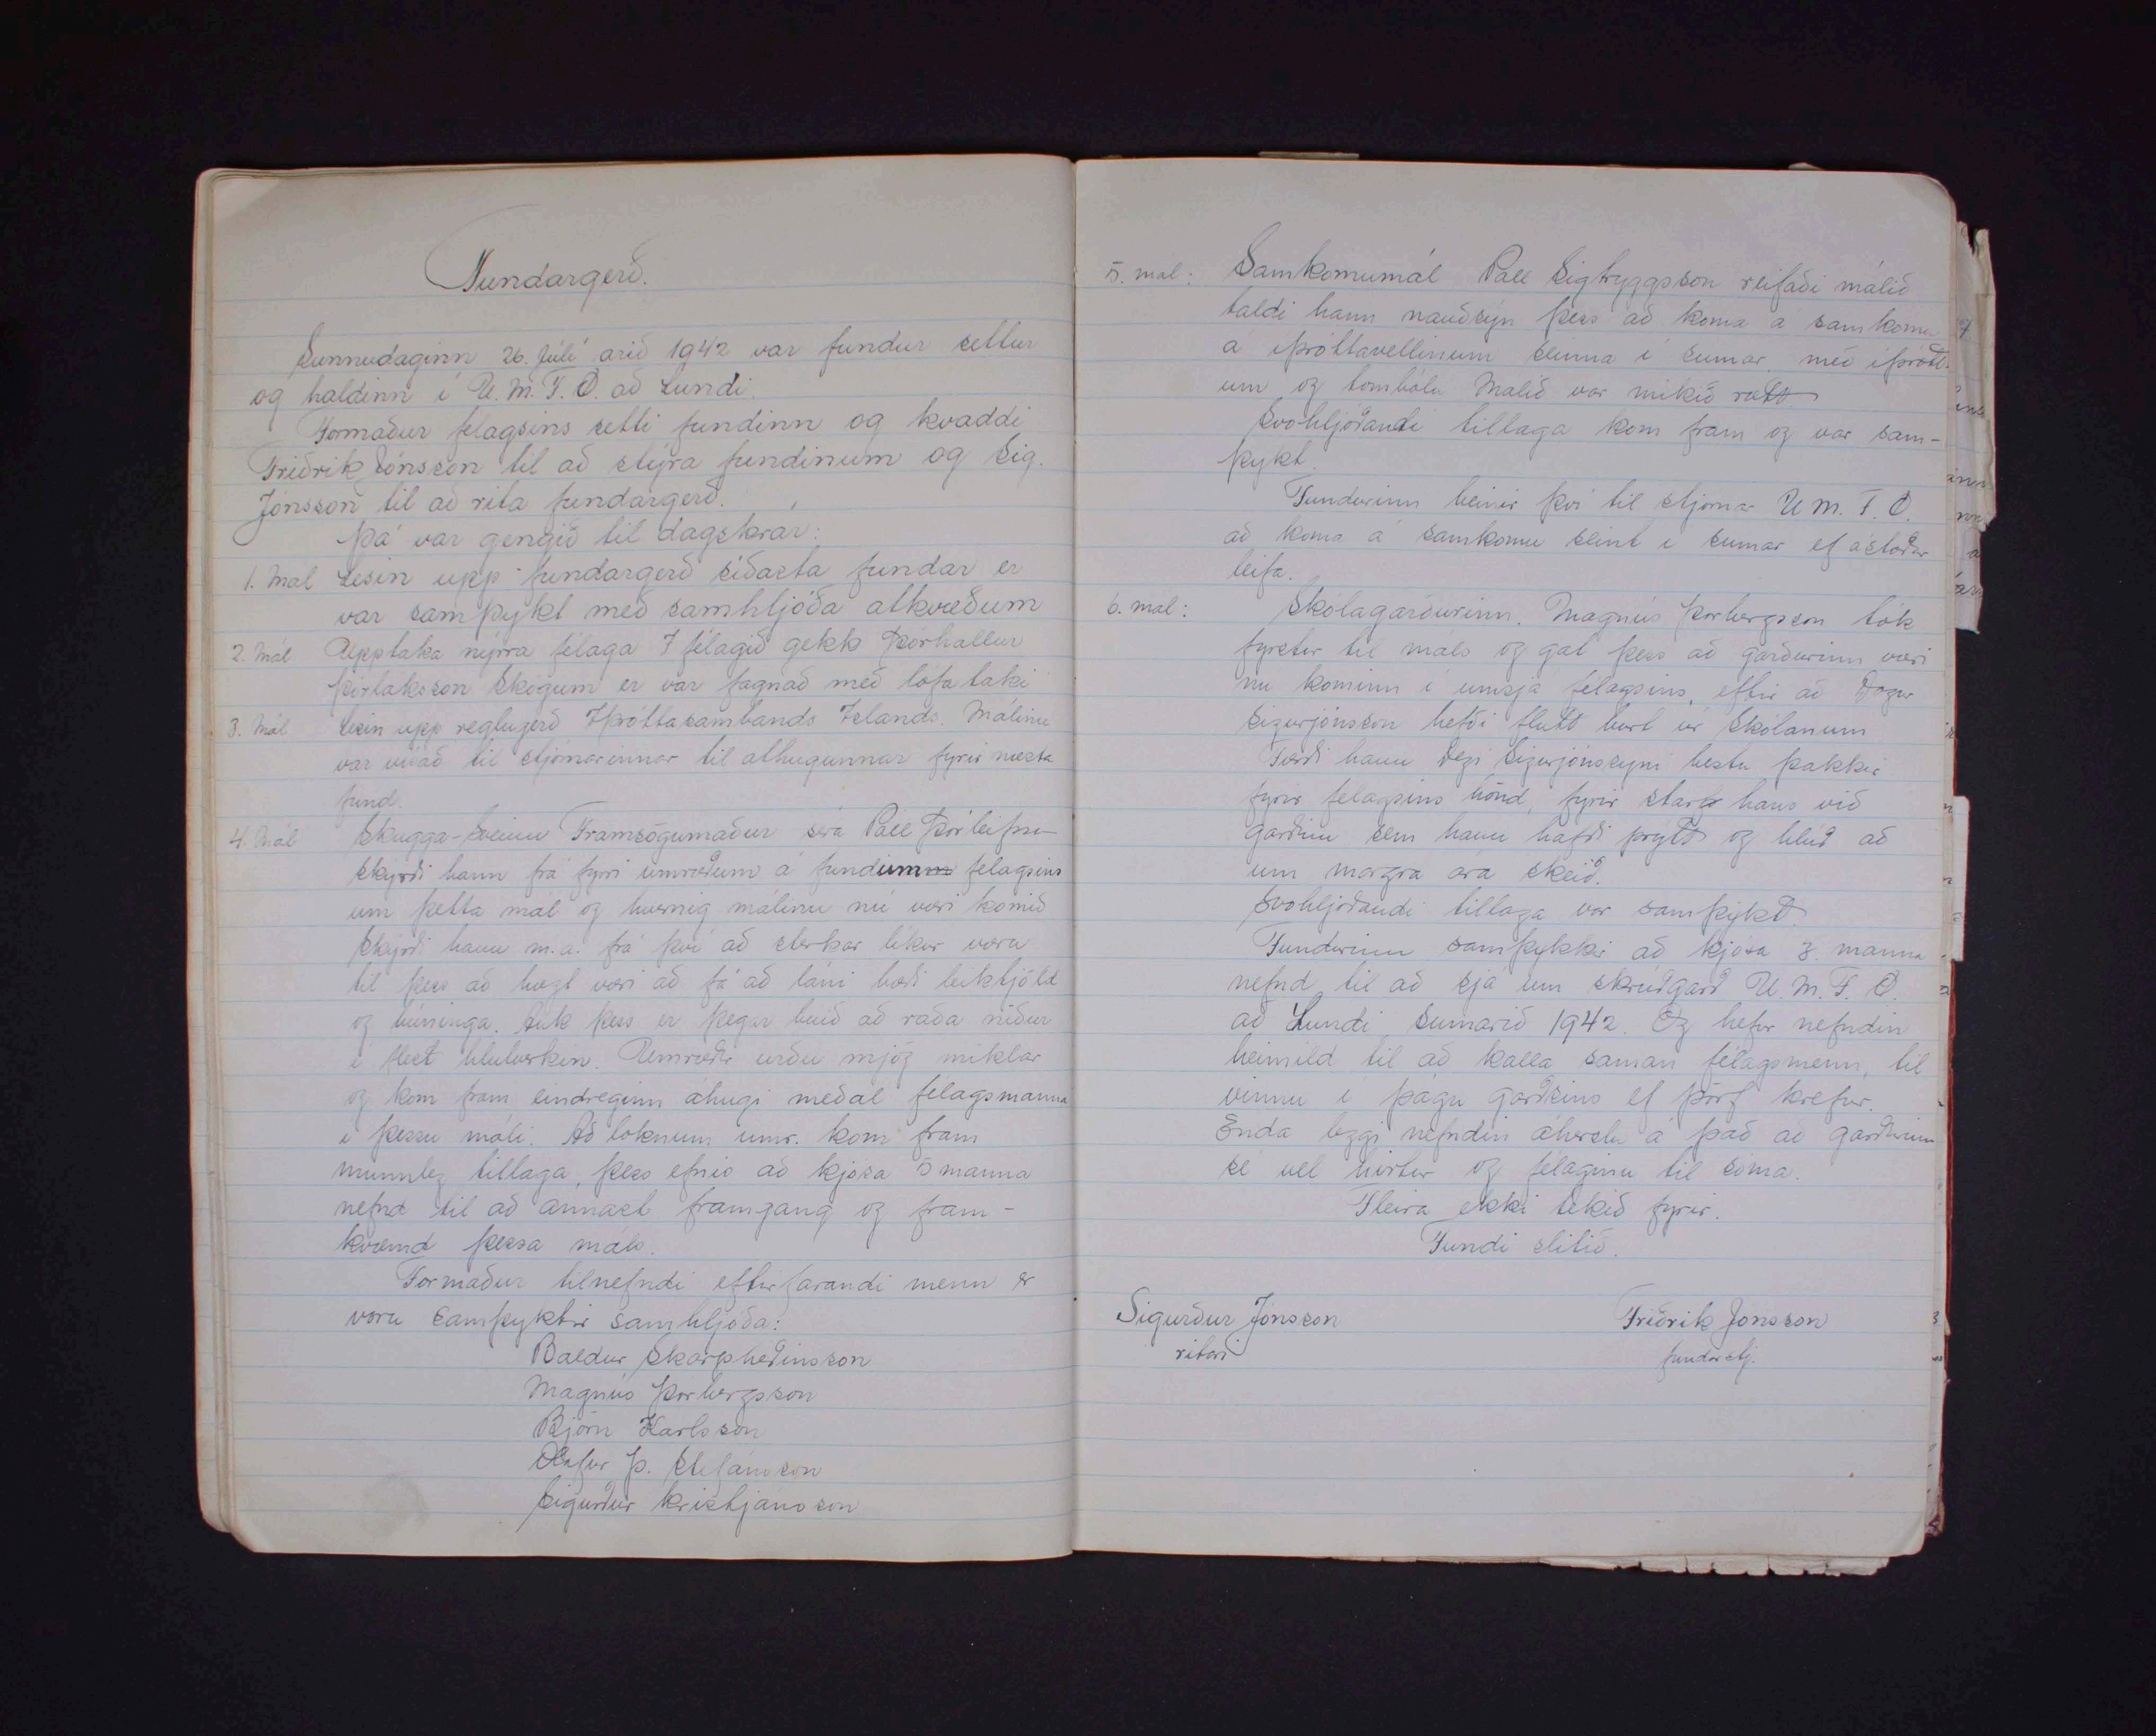 Fundargerð.
Sunnudaginn 26. Júlí arið 1942 var fundur settur
og haldinn í U.M.F.Ö. að Lundi.
Formaður felagsins setti fundinn og kvaddi
Friðrik Jónsson til að stýra fundinum og Sig.
Jónsson til að rita fundargerð.
Þá var gengið til dagskrár:
1. Mál Lesin upp fundargerð síðasta fundar er
var samþykt með samhljóða atkvæðum
2. Mál Upptaka nýrra félaga Í félagið gekk Þórhallur
Þorláksson Skógum er var fagnað með lófataki
3. Mál Lesin upp reglugerð Íþróttasambands Íslands. Málinu
var vísað til stjórnarinnar til athugunnar fyrir næsta
fund.
4. Mál Skugga-Sveinn Framsögumaður séra Páll Þorleifsson
skýrði hann frá fyrri umræðum á fundum felagsins
um þetta mál og hvernig málinu nú væri komið
Skýrði hann m.a. frá því að sterkar líkur væru
til þess að hægt væri að fá að láni bæði leiktjöld
og búninga. Auk þess er þegar búið að raða niður
í flest hlutverkin. Umræður urðu mjög miklar
og kom fram eindreginn áhugi meðal félagsmanna
í þessu máli. Að loknum umr. kom fram
munnleg tillaga, þess efnis að kjósa 5 manna
nefnd til að annast framgang og fram-
kvæmd þessa máls.
Formaður tilnefndi eftirfarandi menn er
voru samþyktir samhljóða:
Baldur Skarphéðinsson
Magnús Þorbergsson
Björn Karlsson
Ólafur Þ. Stefánsson
Sigurður Kristjánsson
5. mál: Samkomumál Páll Sigtryggsson reifaði málið
taldi hann nauðsýn þess að koma á samkomu
á íþróttavellinum seinna í sumar, með íþrótt-
um og tombólu Málið var mikið rætt
Svohljóðandi tillaga kom fram og var sam-
þykt.
Fundurinn beinir því til stjórnar U.M.F.Ö.
að koma á samkomu seint í sumar ef ástæður
leifa.
6. mál: Skólagarðurinn. Magnús Þorbergsson tók
fyrstur til máls og gat þess að garðurinn væri
nu kominn í umsjá félagsins, eftir að Dagur
Sigurjónsson hefði flutt burt úr Skólanum
Færði hann Degi Sigurjónssyni bestu þakkir
fyrir felagsins hönd, fyrir starf hans við
garðinn sem hann hafði prytt og hlúð að
um margra ára skeið.
Svohljóðandi tillaga var samþykt
Fundurinn samþykkir að kjósa 3. manna
nefnd til að sjá um skrúðgarð U.M.F.Ö.
að Lundi, Sumarið 1942. Og hefur nefndin
heimild til að kalla saman félagsmenn, til
vinnu í þágu garðsins ef þörf krefur.
Enda leggi nefndin áherslu á það að garðurinn
sé vel hirtur og felaginu til sóma.
Fleira ekki tekið fyrir.
Fundi slitið.
Sigurður Jónsson Friðrik Jónsson
ritari fundarstj.